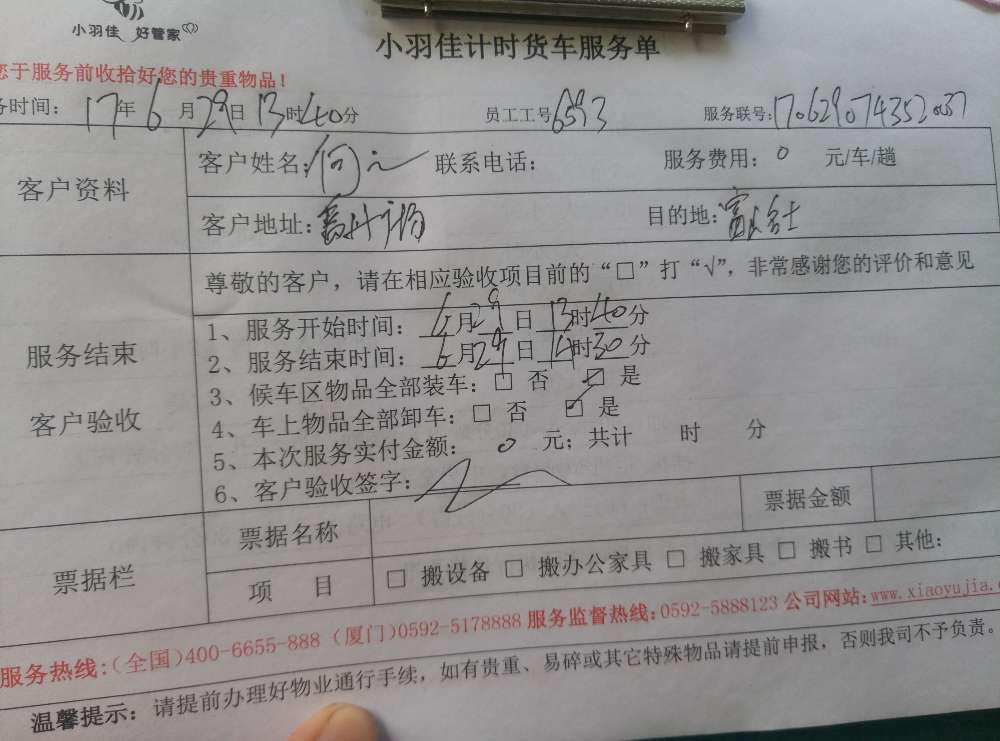 小羽佳 好管家
小羽佳计时货车服务单
您于服务前收拾好您的贵重物品！
务时间：17年6月29日13时40分 员工工号6593 服务联号:
客户资料
客户姓名:何 联系电话： 服务费用：0 元/车/趟
客户地址: 目的地:
尊敬的客户，请在相应验收项目前的“□”打“√”，非常感谢您的评价和意见
服务结束
客户验收
1、服务开始时间：6月29日13时40分
2、服务结束时间：6月29日14时30分
3、候车区物品全部装车：□ 否 ☑ 是
4、车上物品全部卸车：□ 否 ☑ 是
5、本次服务实付金额： 0 元；共计 时 分
6、客户验收签字：
票据栏
票据名称 票据金额
项 目 □ 搬设备 □ 搬办公家具 □ 搬家具 □ 搬书 □ 其他：
服务热线:（全国）400-6655-888（厦门）0592-5178888 服务监督热线:0592-5888123 公司网站:www.xiaoyujia.
温馨提示：请提前办理好物业通行手续，如有贵重、易碎或其它特殊物品请提前申报，否则我司不予负责。